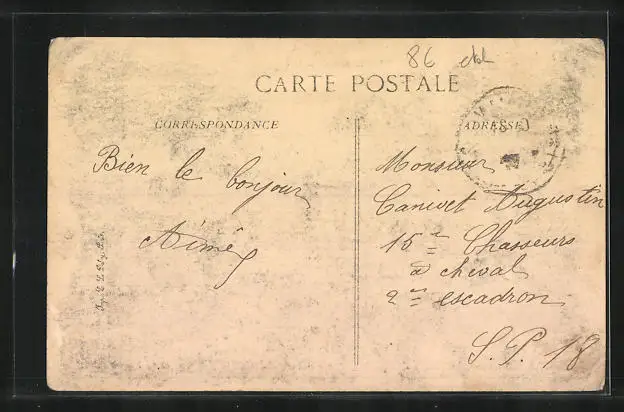 86
CARTE POSTALE
CORRESPONDANCE
ADRESSE
Bien le bonjour
Aimé
Monsieur
Canivet Augustin
15e Chasseurs
à cheval
2me escadron
S. P. 18